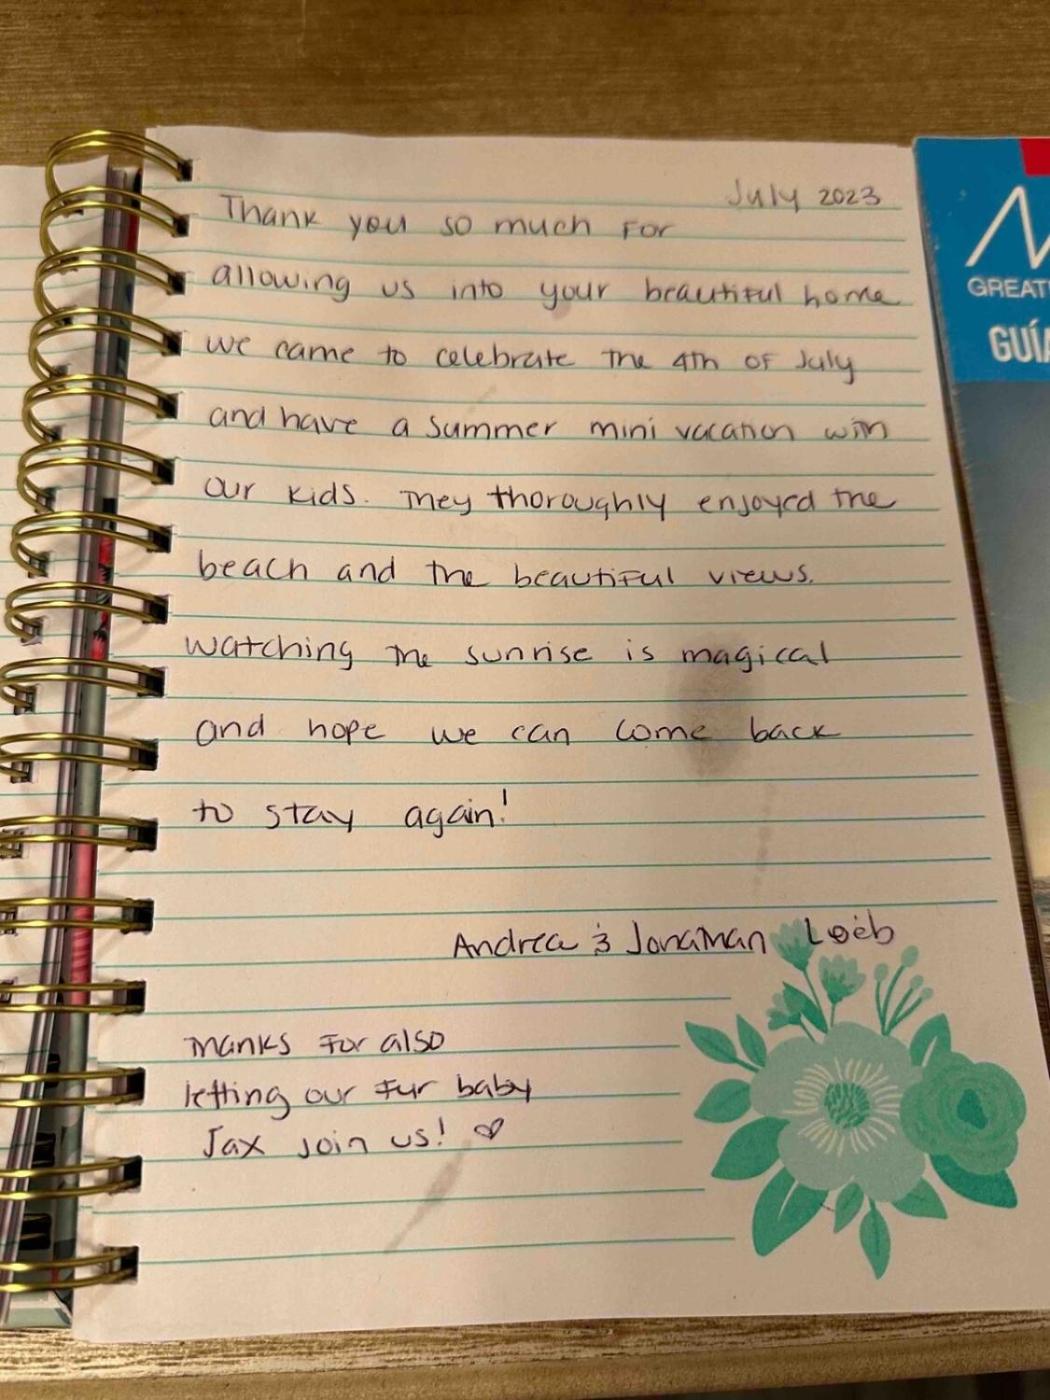 July 2023
Thank you so much for
allowing us into your beautiful home
we came to celebrate the 4th of July
and have a summer mini vacation with
our kids. They thoroughly enjoyed the
beach and the beautiful views.
Watching the sunrise is magical
and hope we can come back
to stay again!
Andrea & Jonathan Loeb
Thanks for also
letting our fur baby
Jax join us! ♡
GREAT
GUÍA